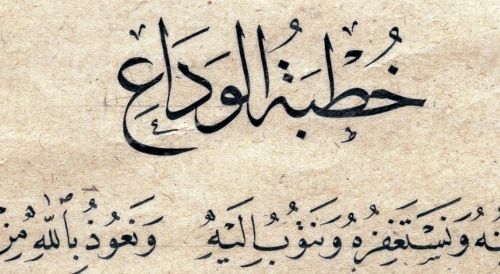 خُطْبَةُ الوَدَاعِ
نُهُ وَنَسْتَغْفِرُهُ وَنَتُوبُ إِلَيْهِ وَنَعُوذُ بِاللّٰهِ مِنْ